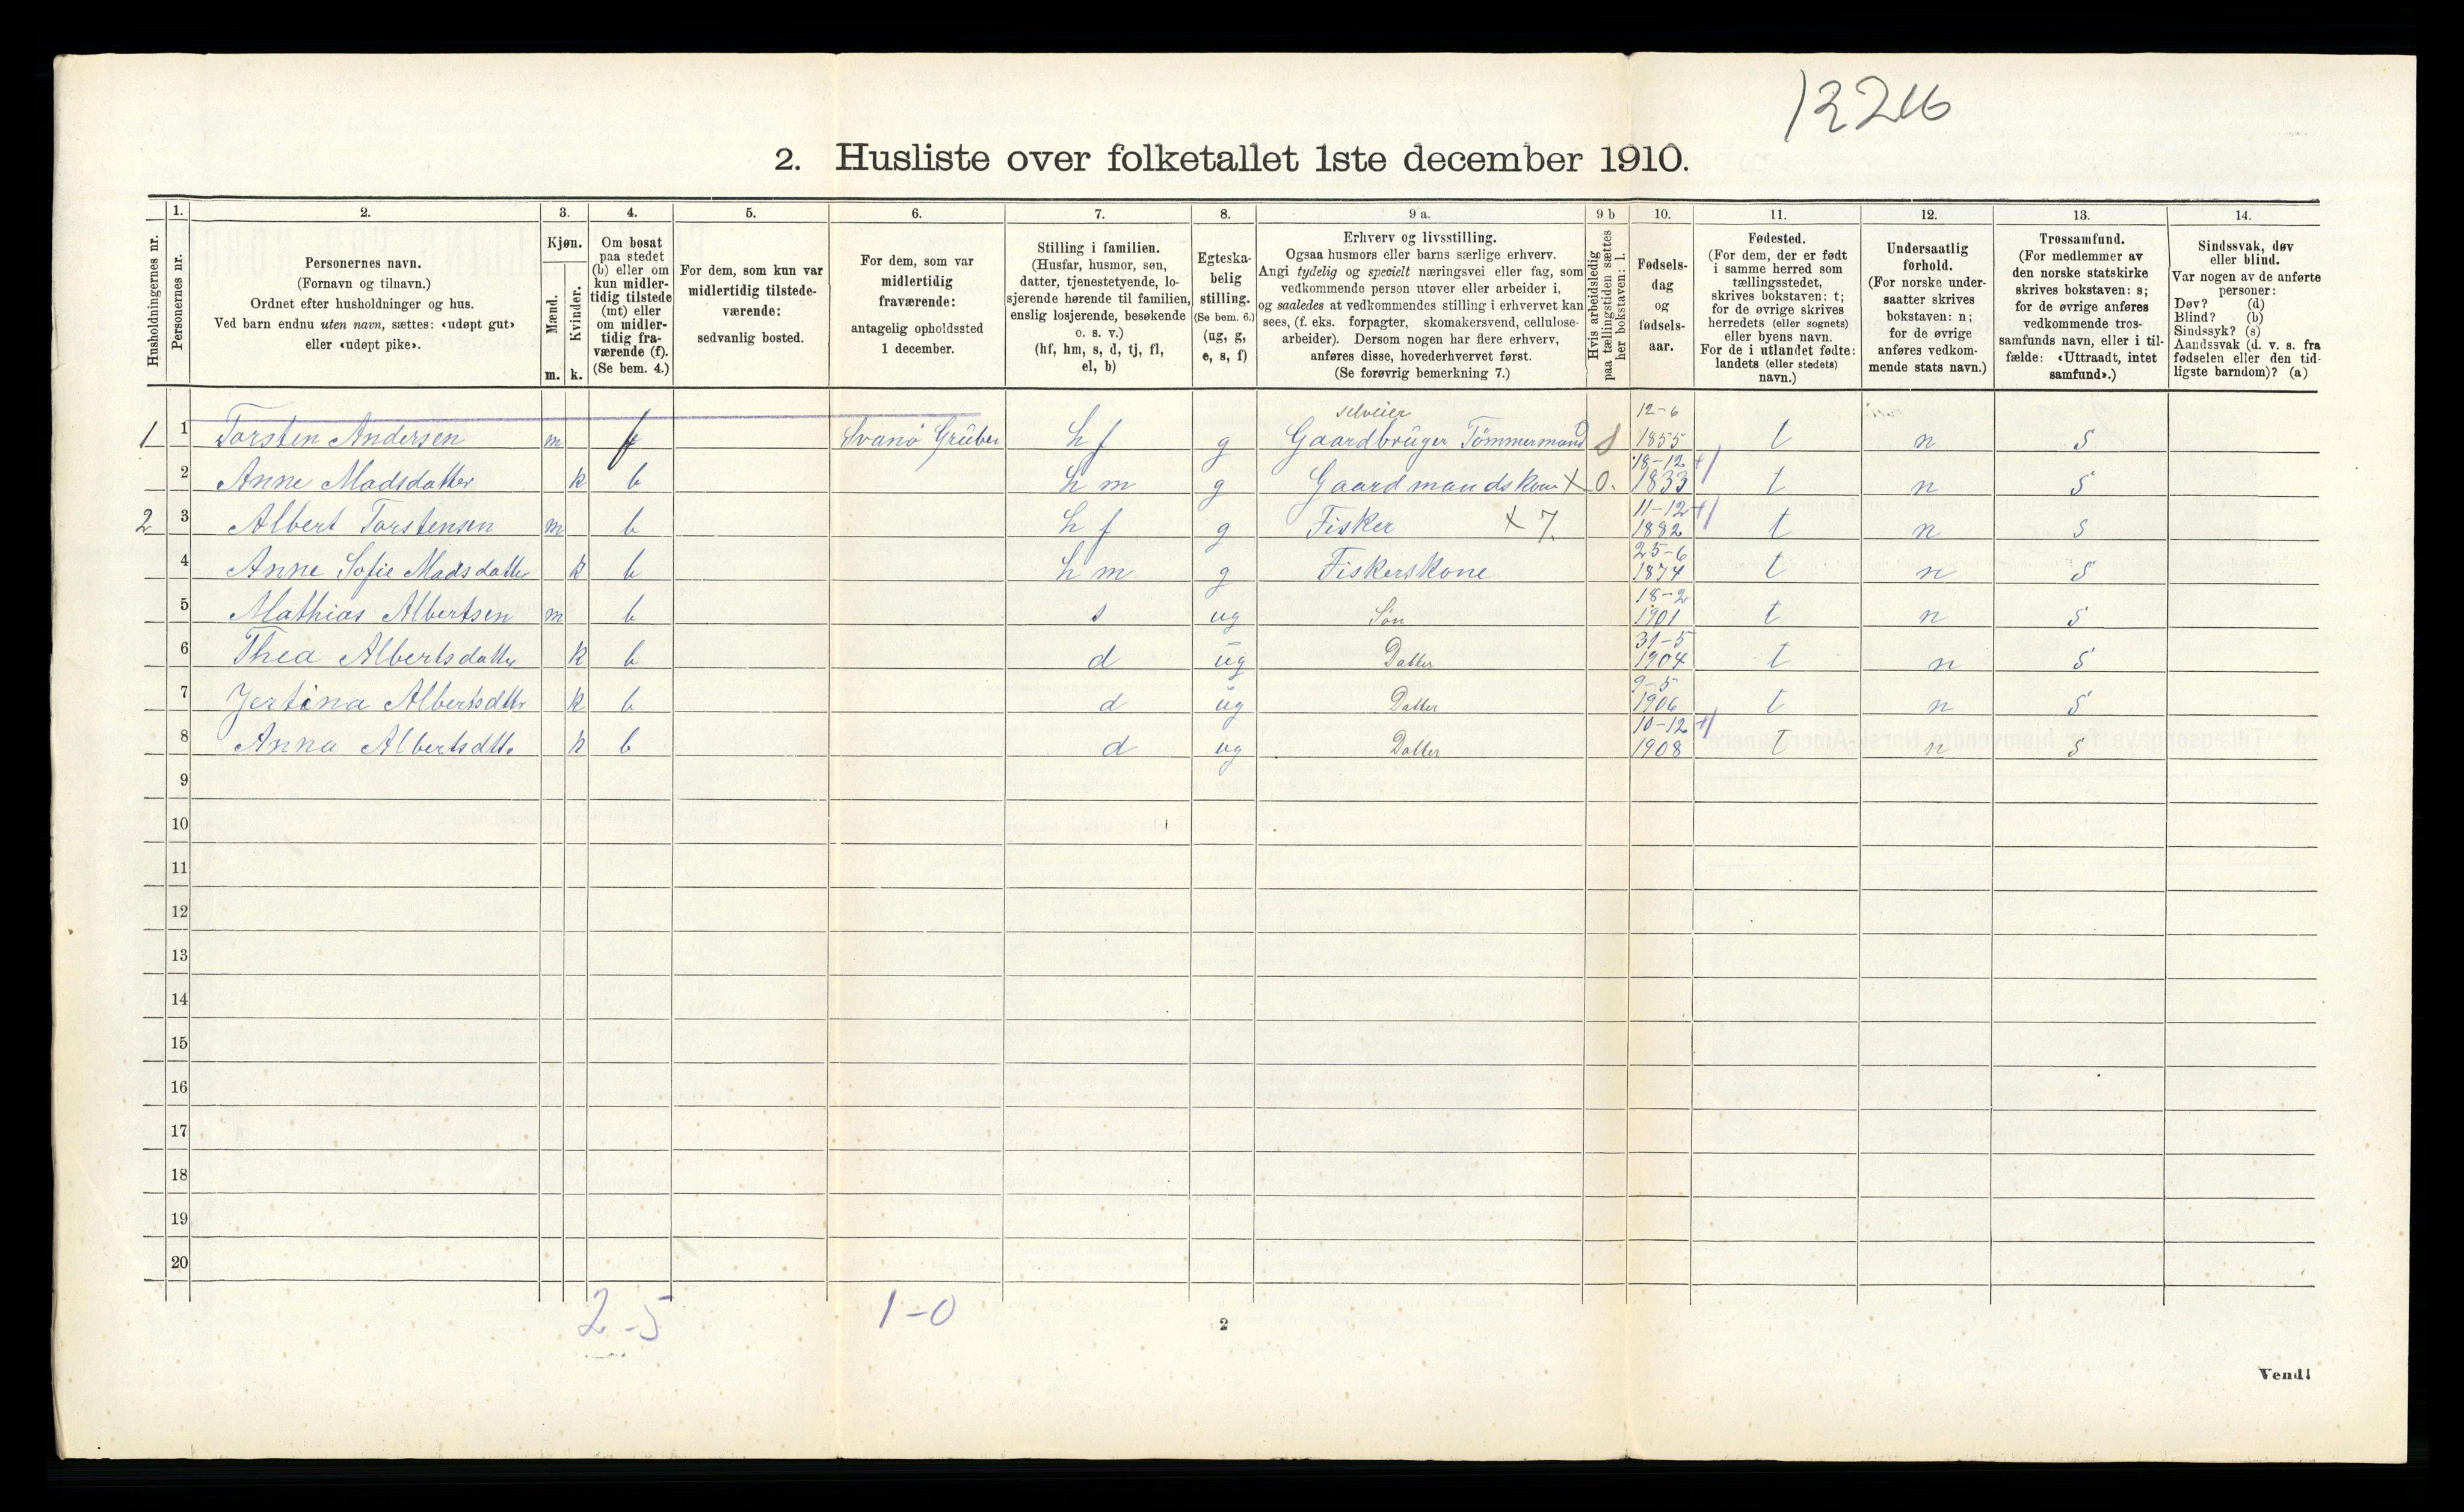 2. Husliste over folketallet 1ste december 1910.
1. 2. 3. 4. 5. 6. 7. 8. 9 a. 9 b 10. 11. 12. 13. 14.
Husholdningernes nr.
Personernes nr.
Personernes navn.
(Fornavn og tilnavn.)
Ordnet efter husholdninger og hus.
Ved barn endnu uten navn, sættes: «udøpt gut»
eller «udøpt pike».
Kjøn.
Mænd.
Kvinder.
m. k.
Om bosat
paa stedet
(b) eller om
kun midler-
tidig tilstede
(mt) eller
om midler-
tidig fra-
værende (f).
(Se bem. 4.)
For dem, som kun var
midlertidig tilstede-
værende:
sedvanlig bosted.
For dem, som var
midlertidig
fraværende:
antagelig opholdssted
1 december.
Stilling i familien.
(Husfar, husmor, søn,
datter, tjenestetyende, lo-
sjerende hørende til familien,
enslig losjerende, besøkende
o. s. v.)
(hf, hm, s, d, tj, fl,
el, b)
Egteska-
belig
stilling.
(Se bem. 6.)
(ug, g,
e, s, f)
Erhverv og livsstilling.
Ogsaa husmors eller barns særlige erhverv.
Angi tydelig og specielt næringsvei eller fag, som
vedkommende person utøver eller arbeider i,
og saaledes at vedkommendes stilling i erhvervet kan
sees, (f. eks. forpagter, skomakersvend, cellulose-
arbeider). Dersom nogen har flere erhverv,
anføres disse, hovederhvervet først.
(Se forøvrig bemerkning 7.)
Hvis arbeidsledig
paa tællingstiden sættes
her bokstaven: l.
Fødsels-
dag
og
fødsels-
aar.
Fødested.
(For dem, der er født
i samme herred som
tællingsstedet,
skrives bokstaven: t;
for de øvrige skrives
herredets (eller sognets)
eller byens navn.
For de i utlandet fødte:
landets (eller stedets)
navn.)
Undersaatlig
forhold.
(For norske under-
saatter skrives
bokstaven: n;
for de øvrige
anføres vedkom-
mende stats navn.)
Trossamfund.
(For medlemmer av
den norske statskirke
skrives bokstaven: s;
for de øvrige anføres
vedkommende tros-
samfunds navn, eller i til-
fælde: «Uttraadt, intet
samfund».)
Sindssvak, døv
eller blind.
Var nogen av de anførte
personer:
Døv? (d)
Blind? (b)
Sindssyk? (s)
Aandssvak (d. v. s. fra
fødselen eller den tid-
ligste barndom)? (a)
selveier 12-6
1 1 Torsten Andersen m f Svanø Gruber hf g Gaardbruger Tömmermand 1855 t n s
18-12
2 Anne Madsdatter k b hm g Gaardmandskone X 0. 1833 t n s
11-12
2 3 Albert Torstensen m b hf g Fisker X 7. 1882 t n s
25-6
4 Anne Sofie Madsdatter k b hm g Fiskerskone 1874 t n s
18-2
5 Mathias Albertsen m b s ug Søn 1901 t n s
31-5
6 Thea Albertsdatter k b d ug Datter 1904 t n s
9-5
7 Jertina Albertsdttr k b d ug Datter 1906 t n s
10-12
8 Anna Albertsdttr k b d ug Datter 1908 t n s
9
10
11
12
13
14
15
16
17
18
19
20
2-5 1-0
2
Vend!